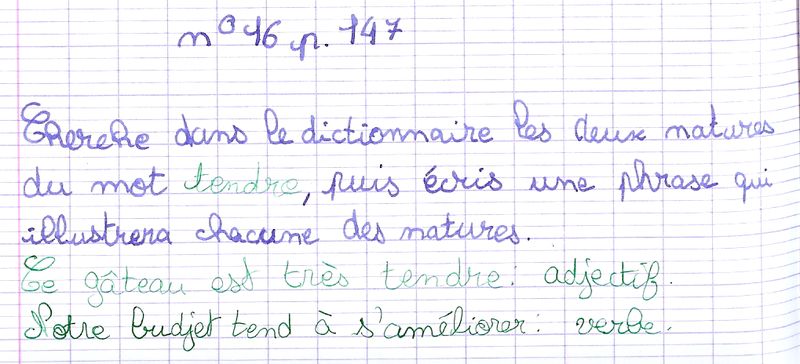 n° 16 p. 147
Cherche dans le dictionnaire les deux natures
du mot tendre, puis écris une phrase qui
illustrera chacune des natures.
Ce gâteau est très tendre : adjectif.
Notre budjet tend à s'améliorer : verbe.